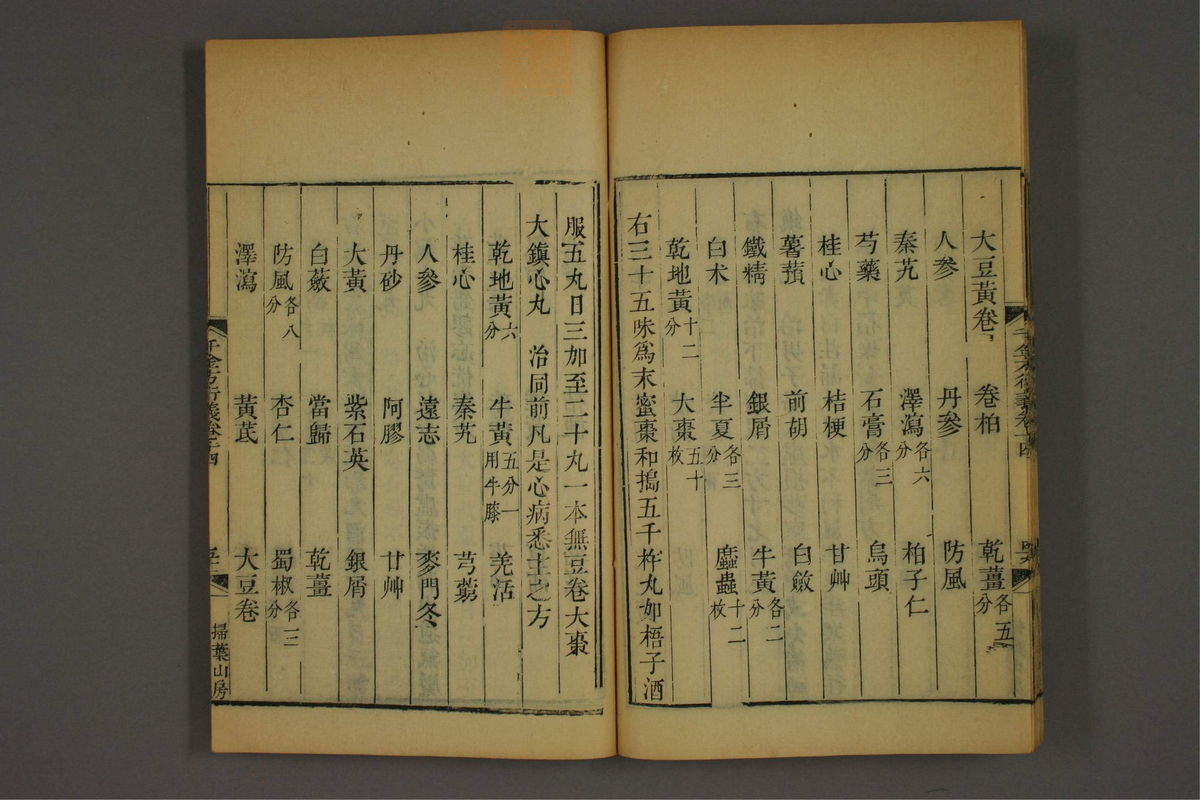 大豆黃卷 卷柏 乾薑各五分
人參 丹參 防風
秦艽 澤瀉各六分 柏子仁
芍藥 石膏各三分 烏頭
桂心 桔梗 甘艸
薯蕷 前胡 白斂
鐵精 銀屑 牛黃各二分
白术 半夏各三分 䗪蟲十二枚
乾地黃十二分 大棗五十枚
右三十五味爲末蜜棗和搗五千杵丸如梧子酒
服五丸日三加至二十丸一本無豆卷大棗
大鎮心丸 治同前凡是心病悉主之方
乾地黃六分 牛黃五分一用牛膝 羌活
桂心 秦艽 芎藭
人參 遠志 麥門冬
丹砂 阿膠 甘艸
大黃 紫石英 銀屑
白蘞 當歸 乾薑
防風各八分 杏仁 蜀椒各二分
澤瀉 黃芪 大豆卷
千金方衍義卷十四
掃葉山房